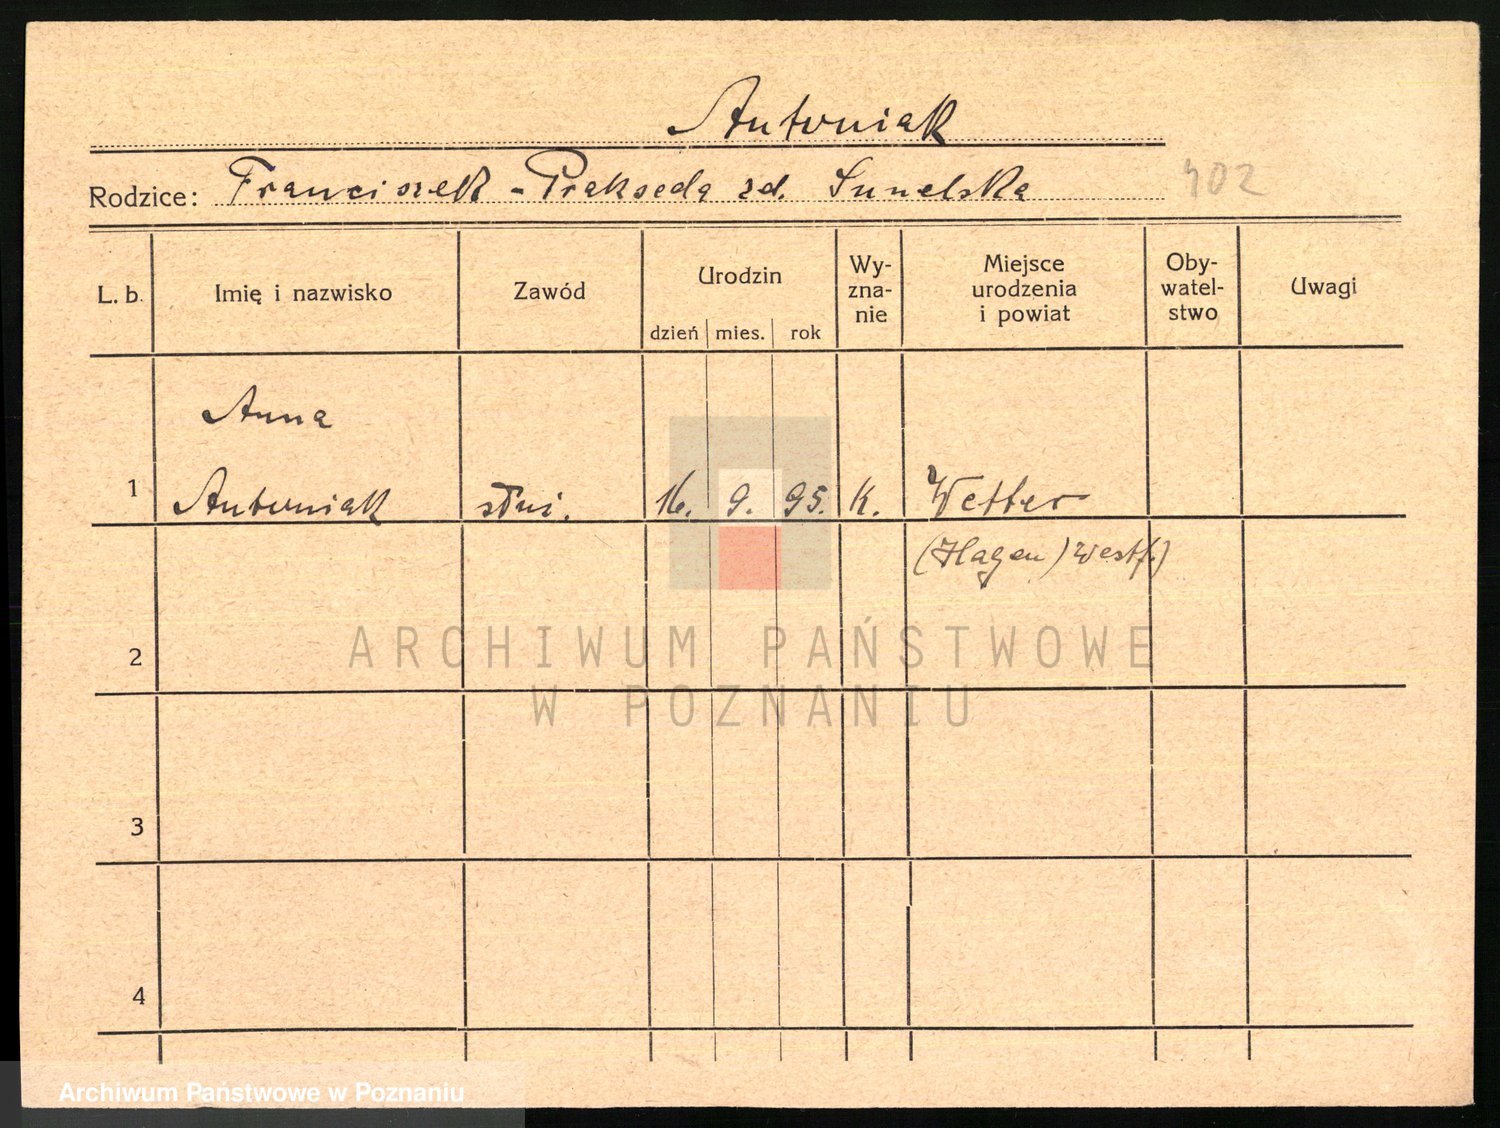 Antoniak
Rodzice: Franciszek - Prakseda zd. Sunelska
402
L. b.
Imię i nazwisko
Zawód
Urodzin
dzień mies. rok
Wy-
zna-
nie
Miejsce
urodzenia
i powiat
Oby-
watel-
stwo
Uwagi
Anna
1 Antoniak służ. 16. 9. 95. K. Wetter
(Hagen) Westf.)
2
3
4
ARCHIWUM PAŃSTWOWE
W POZNANIU
Archiwum Państwowe w Poznaniu